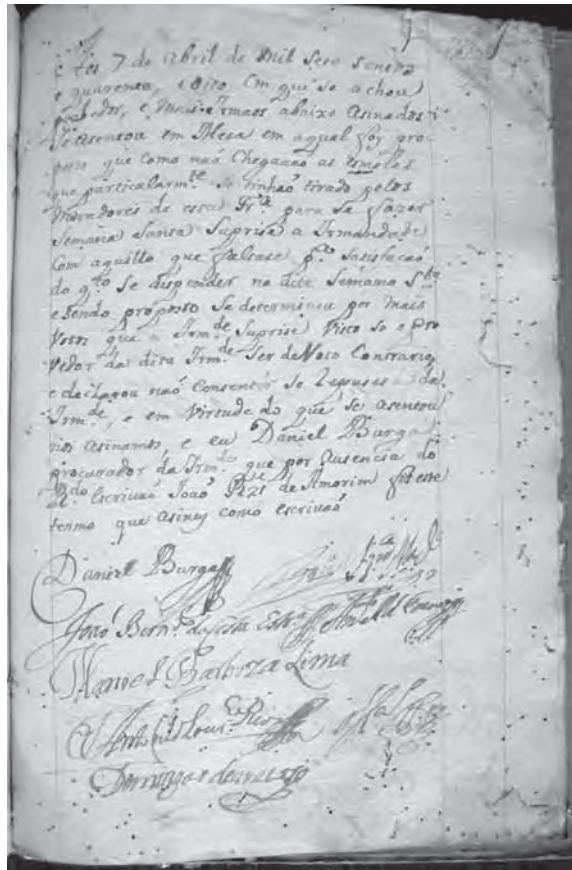 Aos 7 de Abril de Mil Sete Sentos
e quarenta, e Oito Em que se achou
e Mais Irmaos abaixo asinados
Se asentou em Mesa em a qual foy pro
posto que como naó Chegavaó as esmolas
que particalarm.te se tinhaó tirado pelos
Moradores de essa Fr.a para se fazer
Semana Santa Suprise a Irmandade
Com aquillo que faltase p.a Satisfacaó
do q.to se dispender na dita Semana S.ta
e sendo proposto Se determinou por mais
Votos que a Irm.de Suprise Visto so o pro
vedor da dita Irm.de Ser de Voto Contrario
e declarou naó Consentir Se da
Irm.de, e em Virtude do que se asentou
nos asinamos, e eu Daniel Burga
procurador da Irm.de que por Ausencia do
R.do Escrivaó Joaó de Amorim fis este
termo que asiney como escrivaó
Daniel Burga
Joaó Bern.do da Costa
Manoel Barboza Lima
Antonio
Domingos de